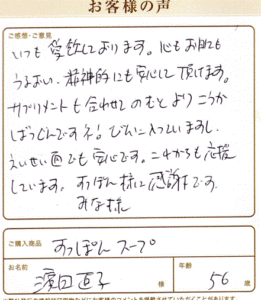 お客様の声
ご感想・ご意見
いつも愛飲しております。心もお肌にも
うるおい、精神的にも安心して頂けます。
サプリメントも合わせてのむとよりこうか
ばつぐんですネ!びんに入っていますし、
えいせい面でも安心です。これからも応援
しています。すっぽん様に感謝です。
みな様
ご購入商品
すっぽんスープ
お名前
濱田直子 様
年齢
56歳